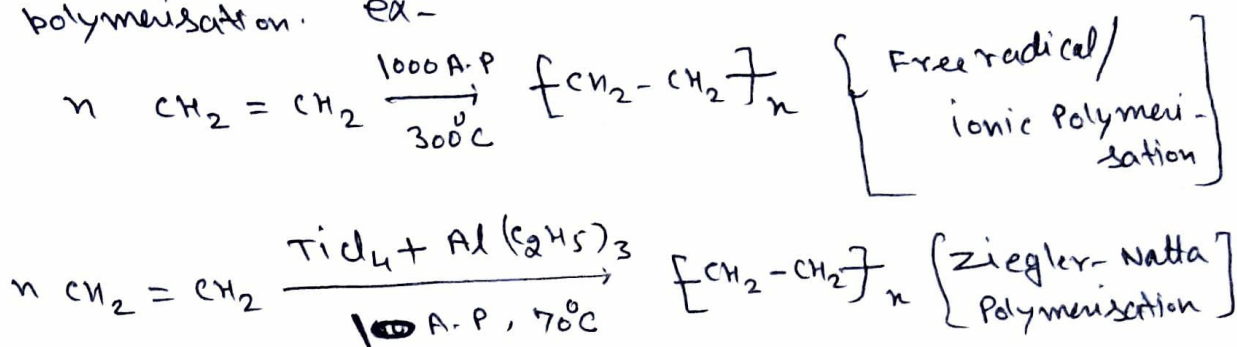 polymerisation. ex-
n CH₂ = CH₂ —1000 A.P / 300°C→ [CH₂-CH₂]ₙ { Free radical/
ionic Polymeri-
sation ]
n CH₂ = CH₂ —TiCl₄ + Al(C₂H₅)₃ / A.P, 70°C→ [CH₂-CH₂]ₙ [Ziegler-Natta
Polymerisation]